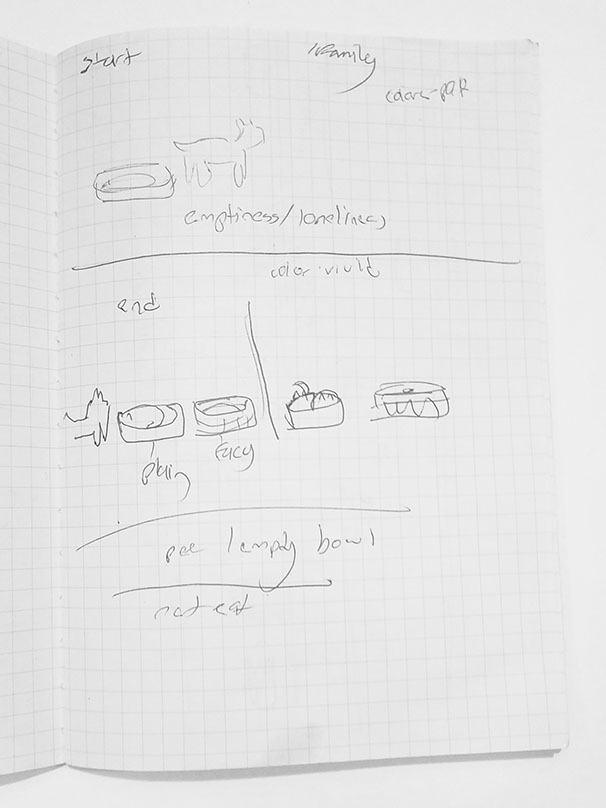 start
Family
emptiness/loneliness
color: vivid
end
plain
Facy
pee / empty bowl
not eat